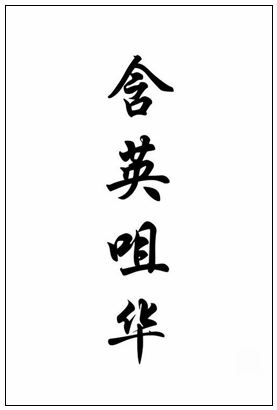 含英咀华